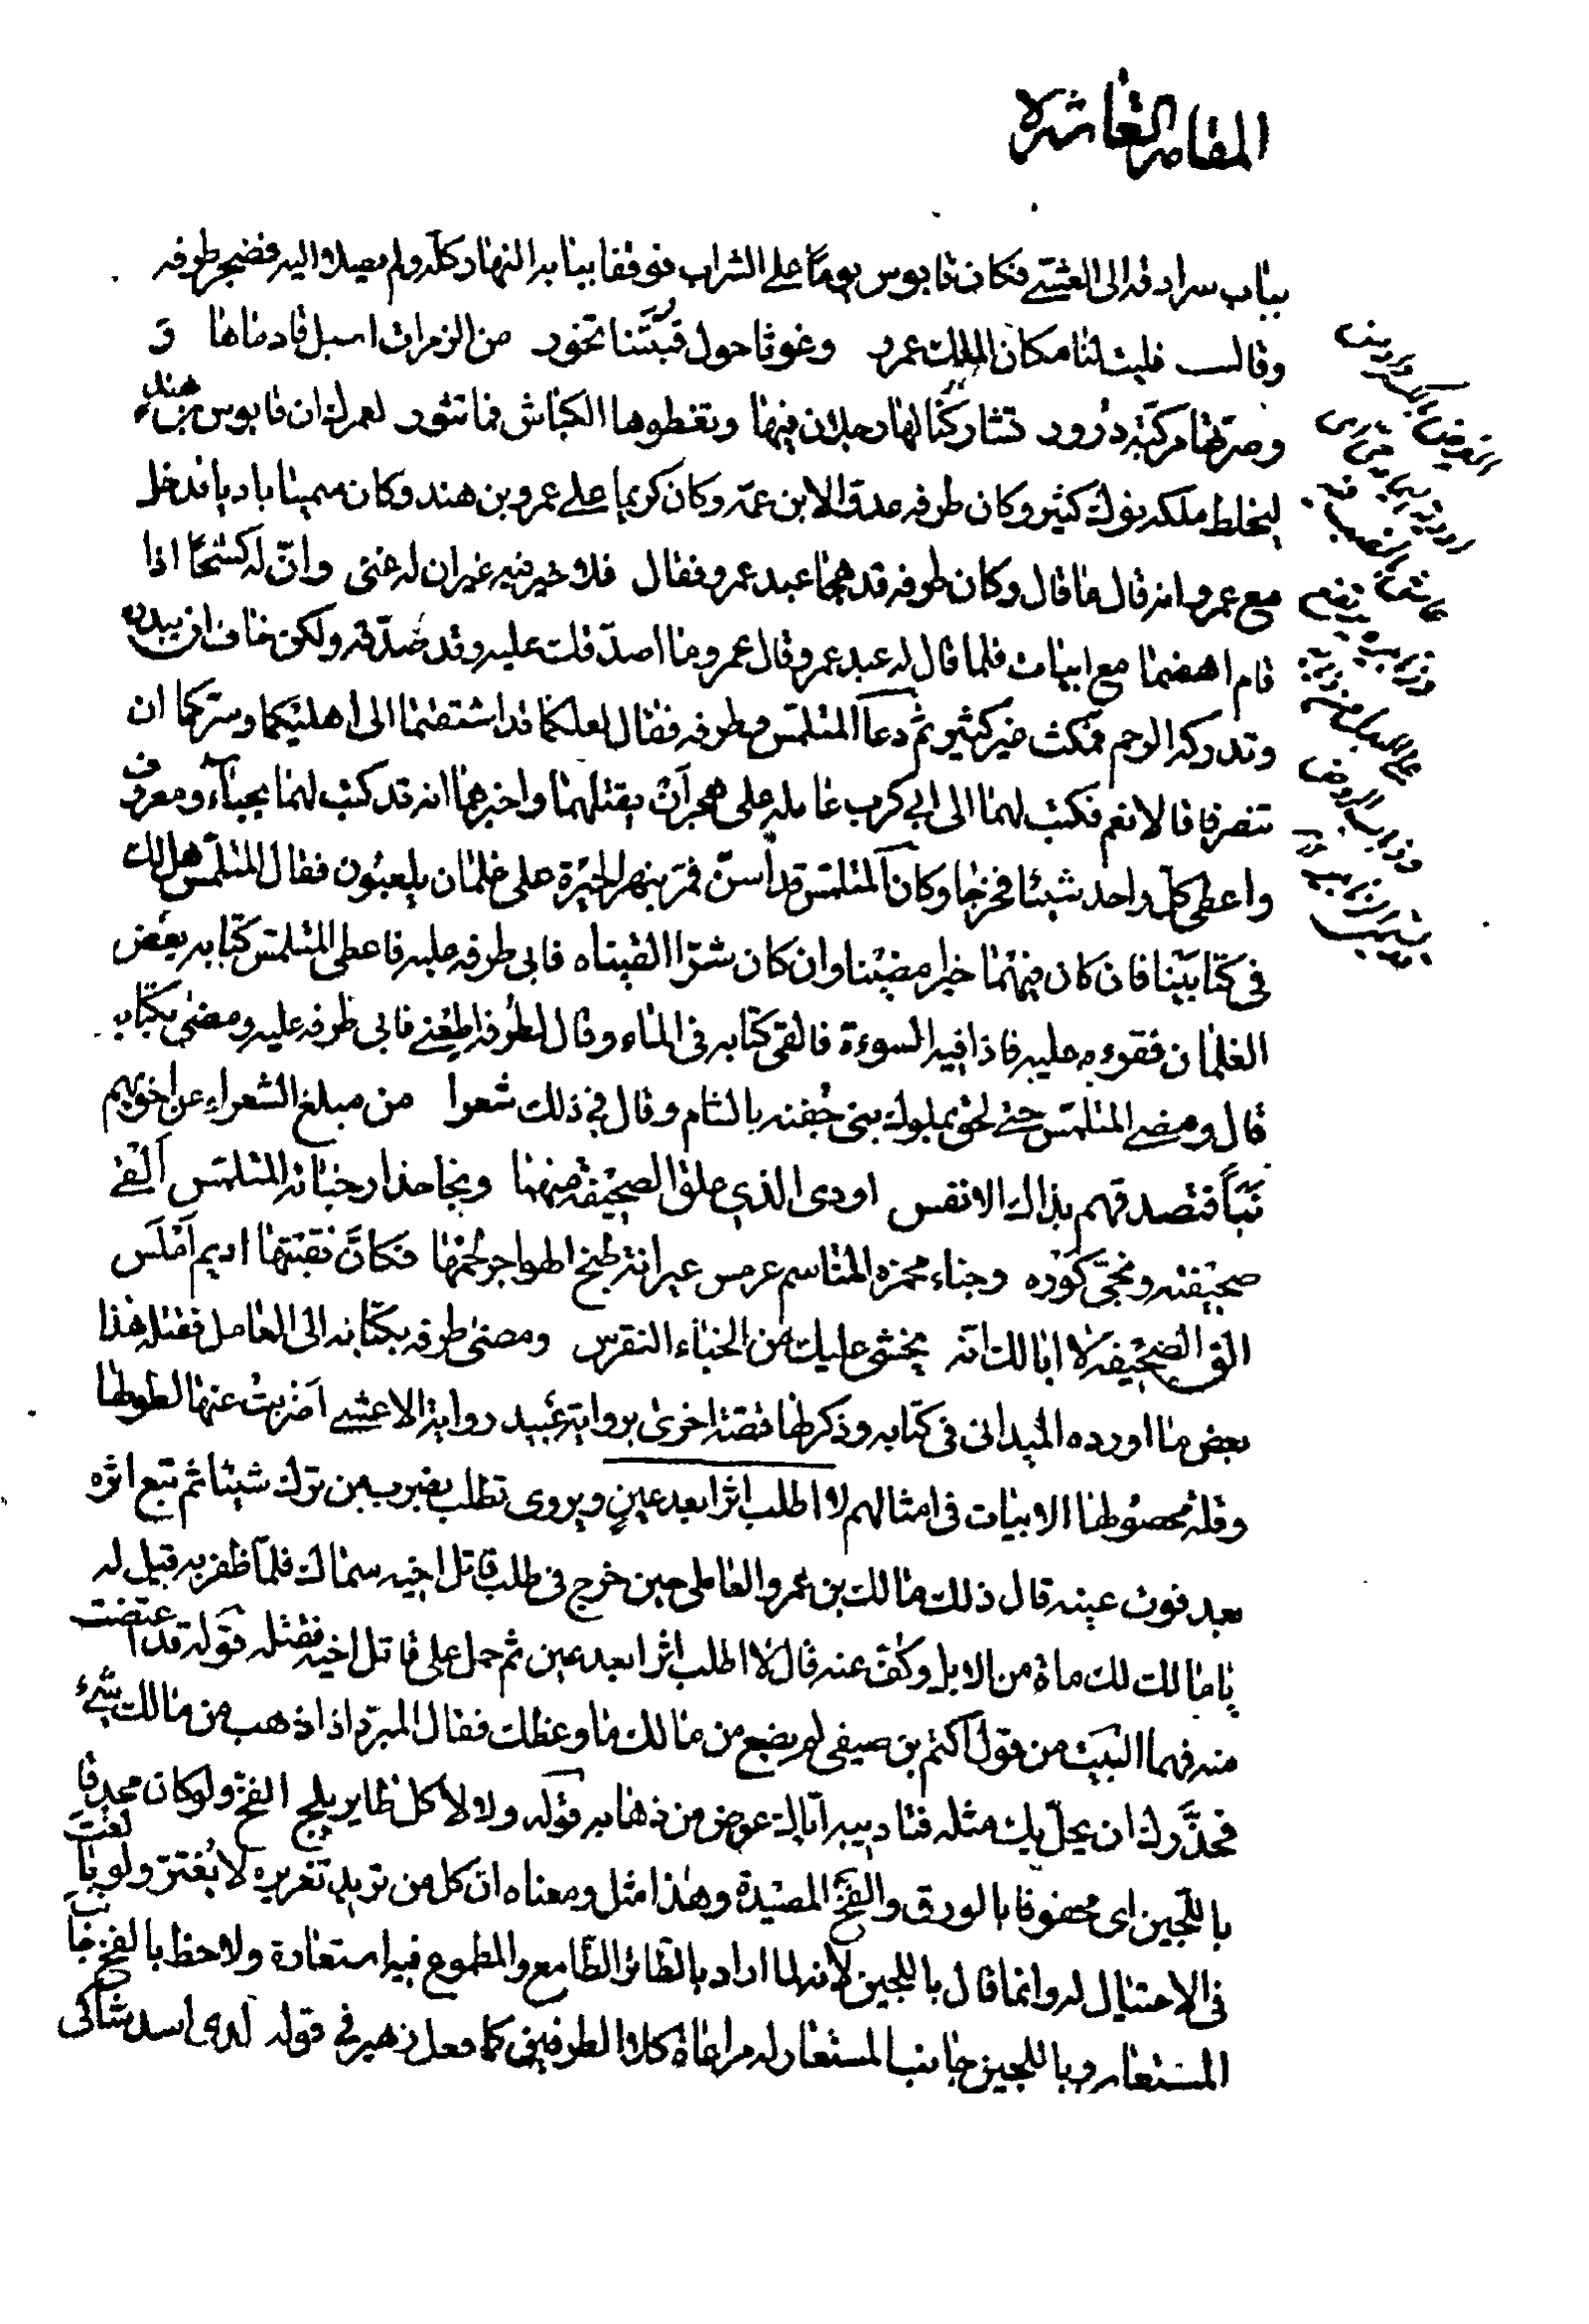 المقامة العاشرة
بباب سرادقه الى العشي فكان قابوس يوما على الشراب فوقفا ببابه النهار كله ولم يصلا اليه فضجر طرفه
وقال فليت لنا مكان الملك عمرو وغوثا حول قبّتنا تخور من الزمرات اسبل قادماها و
وضرتها مركنة درور تشاركنا لها رحلان فيها وتعطوها الكباش فما تثور لعمرك ان قابوس بن هند
ليخلط ملكه نوك كثير وكان طرفه عدوّا لابن عمه وكان كريما على عمرو بن هند وكان سمينا بادنا فدخل
مع عمرو انه قال ما قال وكان طرفه قد هجا عبد عمرو فقال فلا خير فيه غير ان له غنى وانّ له كشحًا اذا
قام اهضما مع ابيات فلما قال له عبد عمرو قال عمرو ما اصدّقك عليه وقد صدّقه ولكن خاف ان ينذره
وتدركه الرحم فمكث غير كثير ثم دعا المتلمّس وطرفه فقال لعلكما قد اشتقتما الى اهليكما وسرّكما ان
تنصرفا قالا نعم فكتب لهما الى ابي كرب عامله على هجر ان يقتلهما واخبرهما انه قد كتب لهما بحباء ومعروف
واعطى كل واحد شيئا فخرجا وكان المتلمّس قد اسنّ فمرّ بنهر الحيرة على غلمان يلعبون فقال المتلمّس هل لك
فى كتابينا فان كان فيهما خيرا مضينا وان كان شرّا القيناه فابى طرفه عليه فاعطى المتلمّس كتابه بعض
الغلمان فقرءه عليه فاذا فيه السوءة فالقى كتابه فى الماء وقال لطرفه اطعنى فابى طرفه عليه ومضى بكتابه
قال ومضى المتلمّس حتى لحق بملوك بنى جفنه بالشام وقال في ذلك شعرا من مبلغ الشعراء عن اخويهم
نبأ فتصدقهم بذاك الانفس اودى الذي علق الصحيفة منهما ونجا حذار حبائه المتلمّس القى
صحيفته ونجّى كوره وجناء مجمرة المناسم عرمس عيرانة طبخ الهواجر لحمها فكانّ نقبتها اديم املس
الق الصحيفة لا ابا لك انه يخشى عليك من الحباء النقرس ومضى طرفه بكتابه الى العامل فقتله هذا
بعض ما اورده الميدانى فى كتابه وذكر لها قصّة اخرى برواية عبيد رواية الاعشى اضربت عنها لطولها
وقلة محصولها الابيات فى امثالهم لا اطلب اثرا بعد عين ويروى تطلب يضرب لمن ترك شيئا ثم تبع اثره
بعد فوت عينه قال ذلك مالك بن عمرو العاملى حين خرج فى طلب قاتل اخيه سماك فلمّا ظفر به قيل له
يا مالك لك ماة من الابل وكفّ عنه قال لا اطلب اثرا بعد عين ثم حمل على قاتل اخيه فقتله قوله قد اعتضت
منه فهما البيت من قول اكثم بن صيفى لم يضع من مالك ما وعظك فقال المبرّد اذا ذهب من مالك شىء
فحذّرك ان يحلّ بك مثله فتاديبه ايّاك عوض من ذهابه قوله ولا كل طاير يلج الفخّ ولو كان محدقا
باللّجين اى محفوفا بالورق والفخّ المصيدة وهذا مثل ومعناه انّ كل من تريد تغريره لا يغترّ ولو بالغت
فى الاحتيال له وانما قال باللجين لانه لما اراد بالطائر الطّامع والمطموع فيه استعارة ولاحظ بالفخ جانب
المستعار وباللجين جانب المستعار له مراعاة كلا الطرفين كما فعل زهير في قوله لدى اسد شاكى